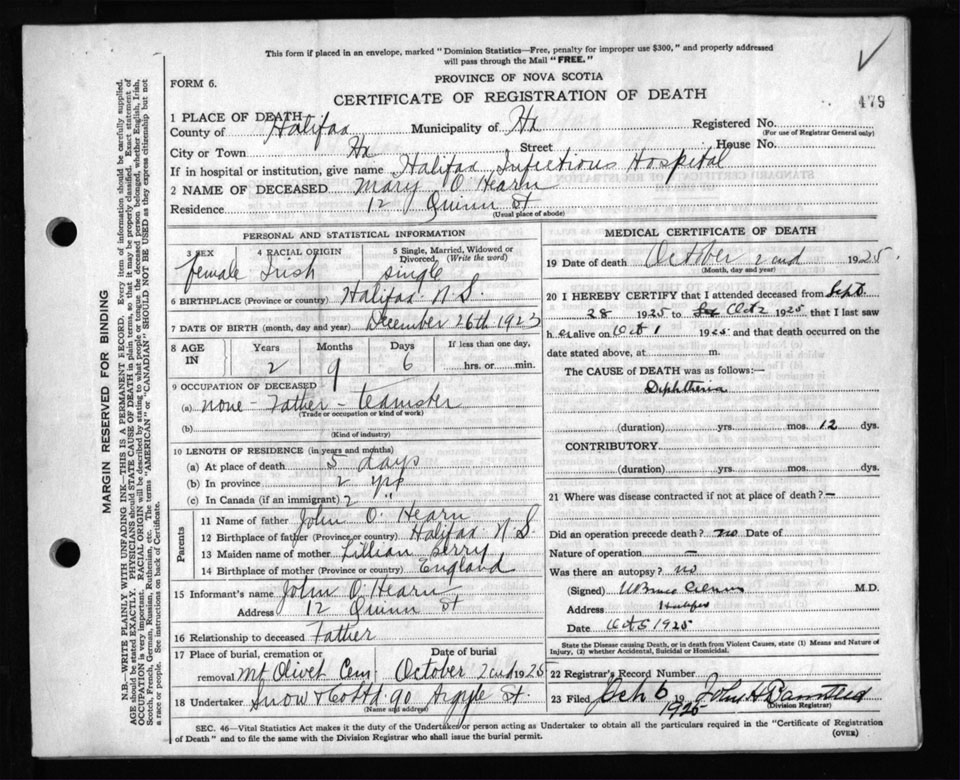 This form if placed in an envelope, marked "Dominion Statistics—Free, penalty for improper use $300," and properly addressed
will pass through the Mail "FREE."
FORM 6.
PROVINCE OF NOVA SCOTIA
CERTIFICATE OF REGISTRATION OF DEATH
479
1 PLACE OF DEATH
County of Halifax Municipality of Hx Registered No.
(For use of Registrar General only)
City or Town Hx Street House No.
If in hospital or institution, give name Halifax Infectious Hospital
2 NAME OF DECEASED Mary O'Hearn
Residence 12 Quinn St
(Usual place of abode)
PERSONAL AND STATISTICAL INFORMATION
3 SEX 4 RACIAL ORIGIN 5 Single, Married, Widowed or
Divorced (Write the word)
female Irish single
6 BIRTHPLACE (Province or country) Halifax N S.
7 DATE OF BIRTH (month, day and year) December 26th 1923
8 AGE IN Years Months Days If less than one day,
2 9 6 hrs. or min.
9 OCCUPATION OF DECEASED
(a) none - Father - teamster
(Trade or occupation or kind of work)
(b)
(Kind of industry)
10 LENGTH OF RESIDENCE (in years and months)
(a) At place of death 5 days
(b) In province 2 yrs
(c) In Canada (if an immigrant) 2 "
Parents
11 Name of father John O'Hearn
12 Birthplace of father (Province or country) Halifax N S.
13 Maiden name of mother Lillian
14 Birthplace of mother (Province or country) England
15 Informant's name John O'Hearn
Address 12 Quinn St
16 Relationship to deceased Father
17 Place of burial, cremation or Date of burial
removal Mt Olivet Cem October 2nd 1925
18 Undertaker Snow & Co Ltd 90 Argyle St.
(Name and address)
MEDICAL CERTIFICATE OF DEATH
19 Date of death October 2nd 1925.
(Month, day and year)
20 I HEREBY CERTIFY that I attended deceased from Sept.
28 1925 to Oct 2 1925 that I last saw
h er alive on Oct 1 1925 and that death occurred on the
date stated above, at m.
The CAUSE of DEATH was as follows:—
Diphtheria
(duration) yrs. mos. 12 dys.
CONTRIBUTORY
(duration) yrs. mos. dys.
21 Where was disease contracted if not at place of death? —
Did an operation precede death? no Date of
Nature of operation —
Was there an autopsy? no
(Signed) M.D.
Address Halifax
Date Oct 5 1925
State the Disease causing Death, or in death from Violent Causes, state (1) Means and Nature of
Injury, (2) whether Accidental, Suicidal or Homicidal.
22 Registrar's Record Number
23 Filed Oct 6 19 John H
1925 (Division Registrar)
SEC. 46—Vital Statistics Act makes it the duty of the Undertaker or person acting as Undertaker to obtain all the particulars required in the "Certificate of Registration
of Death" and to file the same with the Division Registrar who shall issue the burial permit.
(OVER)
MARGIN RESERVED FOR BINDING
N.B.—WRITE PLAINLY WITH UNFADING INK—THIS IS A PERMANENT RECORD. Every item of information should be carefully supplied.
AGE should be stated EXACTLY. PHYSICIANS should STATE CAUSE OF DEATH in plain terms, so that it may be properly classified. Exact statement of
OCCUPATION is very important. RACIAL ORIGIN will be described by stating to what people or tongue the deceased person belonged, whether English, Irish,
Scotch, French, German, Russian, Ruthenian, etc. The terms "AMERICAN" or "CANADIAN" SHOULD NOT BE USED as they express citizenship but not
a race or people. See instructions on back of Certificate.